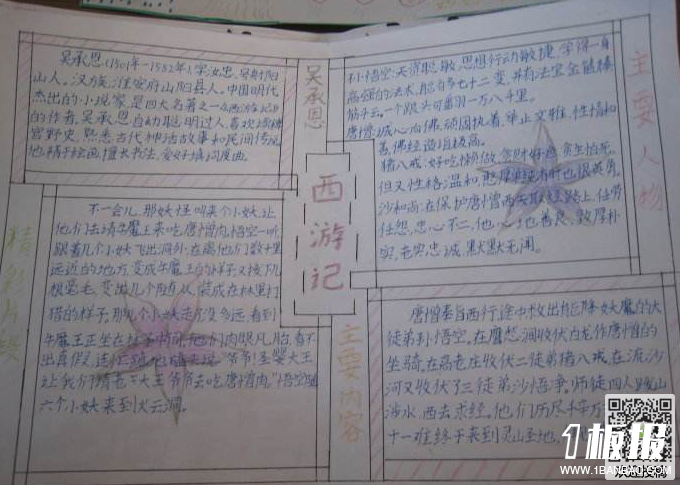 吴承恩(1501年-1582年),字汝忠,号射阳
山人。汉族,淮安府山阳县人。中国明代
杰出的小说家,是四大名著之一《西游记》
的作者,吴承恩自幼聪明过人,喜欢读稗
官野史,熟悉古代神话故事和民间传说
他精于绘画,擅长书法,爱好填词度曲。
吴承恩
孙悟空:天资聪敏,思想行动敏捷,学得一身
高强的法术,能
七十二变,并有法宝金箍棒
筋斗云。一个跟头可翻到一万八千里。
唐僧:诚心向佛,顽固执着,举止文雅,性情和
善,佛经造诣极高。
猪八戒:好吃懒做,贪财好色,贪生怕死,
但又性格温和,憨厚单纯,有时也很英勇。
沙和尚:在保护唐僧西天取经路上,任劳
任怨,忠心不二,他心地善良,敦厚朴
实,老实忠诚,默默无闻。
主要人物
西游记
精彩片段
不一会儿,那妖怪叫来个小妖,让
他们去请牛魔王来吃唐僧肉,悟空一听
跟着几个小妖飞出洞外,在离他们数十里
远近的地方,变成牛魔王的样子,又拔下几
根毫毛,变出几个随从,装成在林里打
猎的样子,那几个小妖走了没多远,看到
牛魔王正坐在林
他们肉眼凡胎,看不
出真假,
"爷爷!圣婴大王
让我们请老大王爷爷去吃唐僧肉。"悟空随
六个小妖来到火云洞。
主要内容
唐僧奉旨西行途中救出能降妖魔的大
徒弟孙悟空。在鹰愁涧收伏白龙作唐僧的
坐骑,在高老庄收伏二徒弟猪八戒,在流沙
河又收伏了三徒弟沙悟净。师徒四人跋山
涉水,西去求经。他们历尽千辛万
十一难终于来到灵山圣地,
1板报
WWW.1BANBAO.COM
欢迎投稿